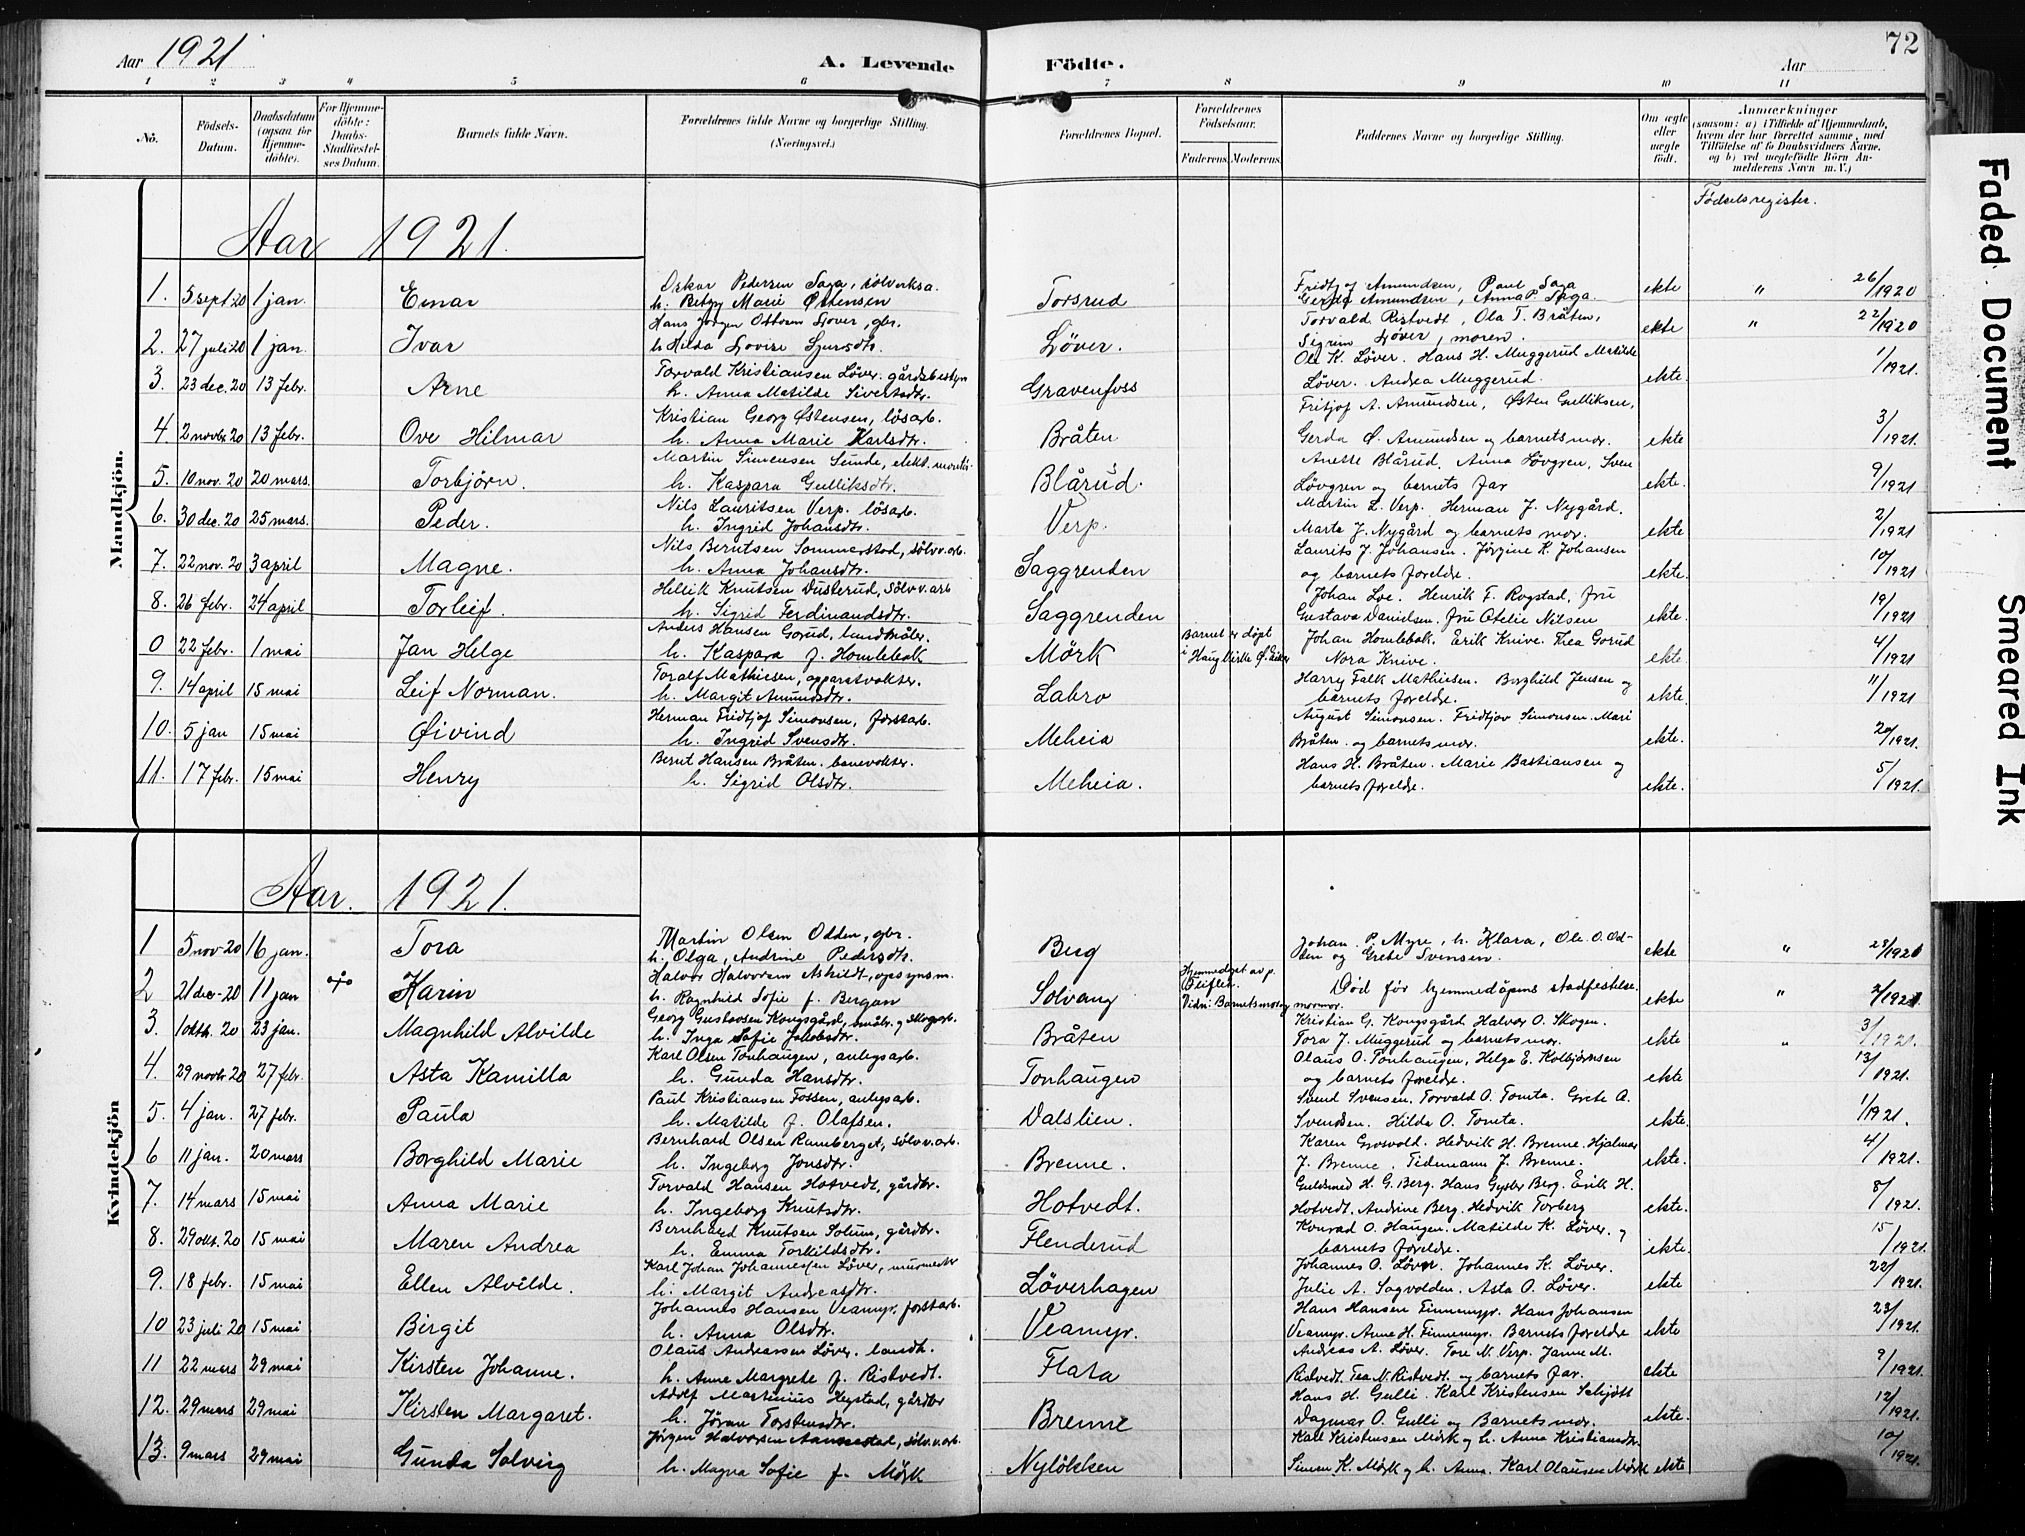 Aar 1921
A. Levende Födte.
Aar
72
1 2 3 4 5 6 7 8 9 10 11
No.
Födsels-Datum.
Daabsdatum (ogsaa for Hjemme-döbte).
For Hjemme-döbte: Daabs-Stadfæstel-ses Datum.
Barnets fulde Navn.
Forældrenes fulde Navne og borgerlige Stilling. (Næringsvei.)
Forældrenes Bopæl.
Forældrenes Födselsaar.
Faderens. Moderens.
Faddernes Navne og borgerlige Stilling.
Om ægte eller uægte födt.
Anmærkninger
(saasom: a) i Tilfælde af Hjemmedaab, hvem der har forrettet samme, med Tilföielse af to Daabsvidners Navne, og b) ved uægtefödte Börn An-melderens Navn m. V.)
Födselsregister.
Mandkjön.
Aar 1921.
1. 5 sept 20 1 jan. Einar Oskar Pedersen Saga, sölverksa. h. Betzy Marie Östensen Torsrud Fridtjof Amundsen, Paul Saga Gerda Amundsen, Anna P. Saga. ekte " 26/1920
2. 27 juli 20 1 jan. Ivar Hans Jörgen Ottosen Löver, gbr. h Hilda Lovise Sjursdtr. Löver. Torvald Ristvedt, Ola T. Bråten, Sigrun Löver, moren. ekte " 22/1920
3. 23 dec. 20 13 febr. Arne Torvald Kristiansen Löver. gårdsbestyr h. Anna Matilde Sivertsdtr. Gravenfoss Ole K. Löver. Hans H. Muggerud Matilde Löver. Andrea Muggerud. ekte. 1/1921.
4 2 novbr 20 13 febr. Ove Hilmar Kristian Georg Östensen, lösarb. h. Anna Marie Karlsdtr. Bråten Fritjof A. Amundsen, Östen Gulliksen, Gerda Ö. Amundsen og barnets mor. ekte 3/1921.
5. 10 nov. 20 20 mars. Torbjörn. Martin Simensen Sunde, elekt. montör. h. Kaspara Gulliksdtr. Blårud. Anette Blårud, Anna Lövgren, Sven Lövgren og barnets far ekte. 9/1921
6. 30 dec. 20 25 mars. Peder. Nils Lauritsen Verp. lösarb. h. Ingrid Johansdtr. Verp. Martin L. Verp. Herman J. Nygård. Marte J. Nygård og barnets mor. ekte 2/1921
7. 22 nov. 20 3 april Magne. Nils Berntsen Sommerstad, sölvv.arb. h. Anna Johansdtr. Saggrenden Laurits J. Johansen. Jörgine K. Johansen og barnets foreldre. ekte. 10/1921
8. 26 febr. 24 april Torleif. Hellik Knutsen Dusterud, Sölvv.arb h. Sigrid Ferdinandsdtr. Saggrenden Johan Loe. Henrik F. Rogstad, fru Gustava Danielsen. fru Otelie Nilsen ekte. 19/1921
0 22 febr. 1 mai Jan Helge Anders Hansen Gorud, landmåler. h. Kaspara f. Homlebæk Mörk Barnet er döpt i Haug kirke Ö. Eiker Johan Homlebæk. Erik Knive. Thea Gorud Nora Knive. ekte. 4/1921
9. 14 april 15 mai Leif Norman. Toralf Mathiesen, apparatvokter. h. Margit Amundsdtr. Labro Harry Falk Mathiesen. Borghild Jensen og barnets foreldre. ekte. 11/1921
10. 5 jan 15 mai Öivind Herman Fridtjof Simonsen, forstarb. h. Ingrid Svensdtr. Meheia August Simonsen. Fridtjov Simonsen. Mari Bråten. og barnets mor. ekte. 20/1921.
11. 17 febr. 15 mai Henry Bernt Hansen Bråten. banevokter. h. Sigrid Olsdtr. Meheia. Hans H. Bråten. Marie Bastiansen og barnets foreldre. ekte. 5/1921.
Kvindekjön
Aar. 1921.
1 5 nov 20 16 jan. Tora Martin Olsen Odden, gbr. h. Olga Andrine Pedersdtr. Berg Johan. P. Myre, h. Klara, Ole. O. Od-den og Grete Svensen. ekte " 28/1920
2 21 dec-20 11 jan Karin Halvor Halvorsen Ashildt, opsynsm. h. Ragnhild Sofie f. Bergan Solvang Hjemmedøpt av p. Vidn: Barnets mor og mormor. Död för hjemmedåpens stadfestelse. ekte " 2/1921
3. 1 oktr. 20 23 jan. Magnhild Alvilde Georg Gustavsen Kongsgård, småbr. og skogarb. h. Inga Sofie Jakobsdtr. Bråten Kristian G. Kongsgård Halvor O. Skogen. Tora J. Muggerud og barnets mor. ekte " 3/1921.
4. 29 novbr 20 27 febr. Asta Kamilla Karl Olsen Tonhaugen, anlegsarb. h. Gunda Hansdtr. Tonhaugen Olaus O. Tonhaugen, Helga E. Kolbjørnsen og barnets foreldre. ekte 13/1921.
5. 4 jan. 27 febr. Paula Paul Kristiansen Fossen, anlegsarb. h. Matilde f. Olafsen. Dalslien. Svend Svensen. Torvald O. Tomta. Grete A. Svendsen. Hilda O. Tomta. ekte. 1/1921.
6 11 jan. 20 mars Borghild Marie Bernhard Olsen Ramberget, sölvv.arb. h. Ingeborg Jonsdtr. Brenne. Karen Grosvold. Hedvik H. Brenne. Hjalmar J. Brenne. Tidemann J. Brenne. ekte. 4/1921.
7. 14 mars 15 mai Anna Marie Torvald Hansen Hotvedt, gårdbr. h. Ingeborg Knutsdtr. Hotvedt. Guldsmed H. G. Berg. Hans Gysler Berg. Erik H. Hotvedt. Andrine Berg. Hedvik Torberg ekte. 8/1921.
8. 29 okt. 20 15 mai Maren Andrea Bernhard Knutsen Solum, gårdbr. h. Emma Torkildsdtr. Flenderud Konrad O. Haugen. Matilde K. Löver. og barnets foreldre. ekte. 15/1921.
9. 18 febr. 15 mai Ellen Alvilde. Karl Johan Johannessen Löver, murmester h. Margit Andreasdtr. Löverhagen Johannes O. Löver. Johannes K. Löver. Julie A. Sagvolden. Asta O. Löver. ekte 22/1921.
10 23 juli 20 15 mai Birgit Johannes Hansen Veamyr. forstarb. h. Anna Olsdtr. Veamyr. Hans Hansen Finnemyr. Hans Johansen Veamyr. Anne H. Finnemyr. Barnets foreldre ekte 23/1921.
11 22 mars 29 mai Kirsten Johanne. Olaus Andreassen Löver. landh. h. Anne Margrete f. Ristvedt. Flata Andreas A. Löver. Tore N. Verp. Janna M. Ristvedt. Tea N. Ristvedt og barnets far. ekte 9/1921.
12. 29 mars 29 mai Kirsten Margaret. Adolf Martinius Heystad, gårdbr h. Jöran Torstensdtr. Brenne Hans H. Gulli. Karl Kristensen Schjött Dagmar O. Gulli og Barnets mor. ekte. 12/1921.
13. 9 mars 29 mai Gunda Solveig Jörgen Halvorsen Aannestad, sölvv.arb. h. Magna Sofie f. Mörk Nylökken Karl Kristensen Mörk og h. Anna Kristiansdtr. Simen K. Mörk og h. Anna. Karl Olausen Mörk ekte 10/1921.
Faded Document
Smeared Ink